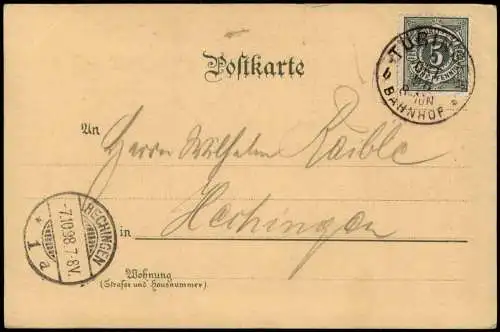 Postkarte
TÜBI
BAHNHOF
5
An
Herrn Wilhelm Raible
Hechingen
in
HECHINGEN
7.10.98.7-8V.
* 1 a
Wohnung
(Strafse und Hausnummer)